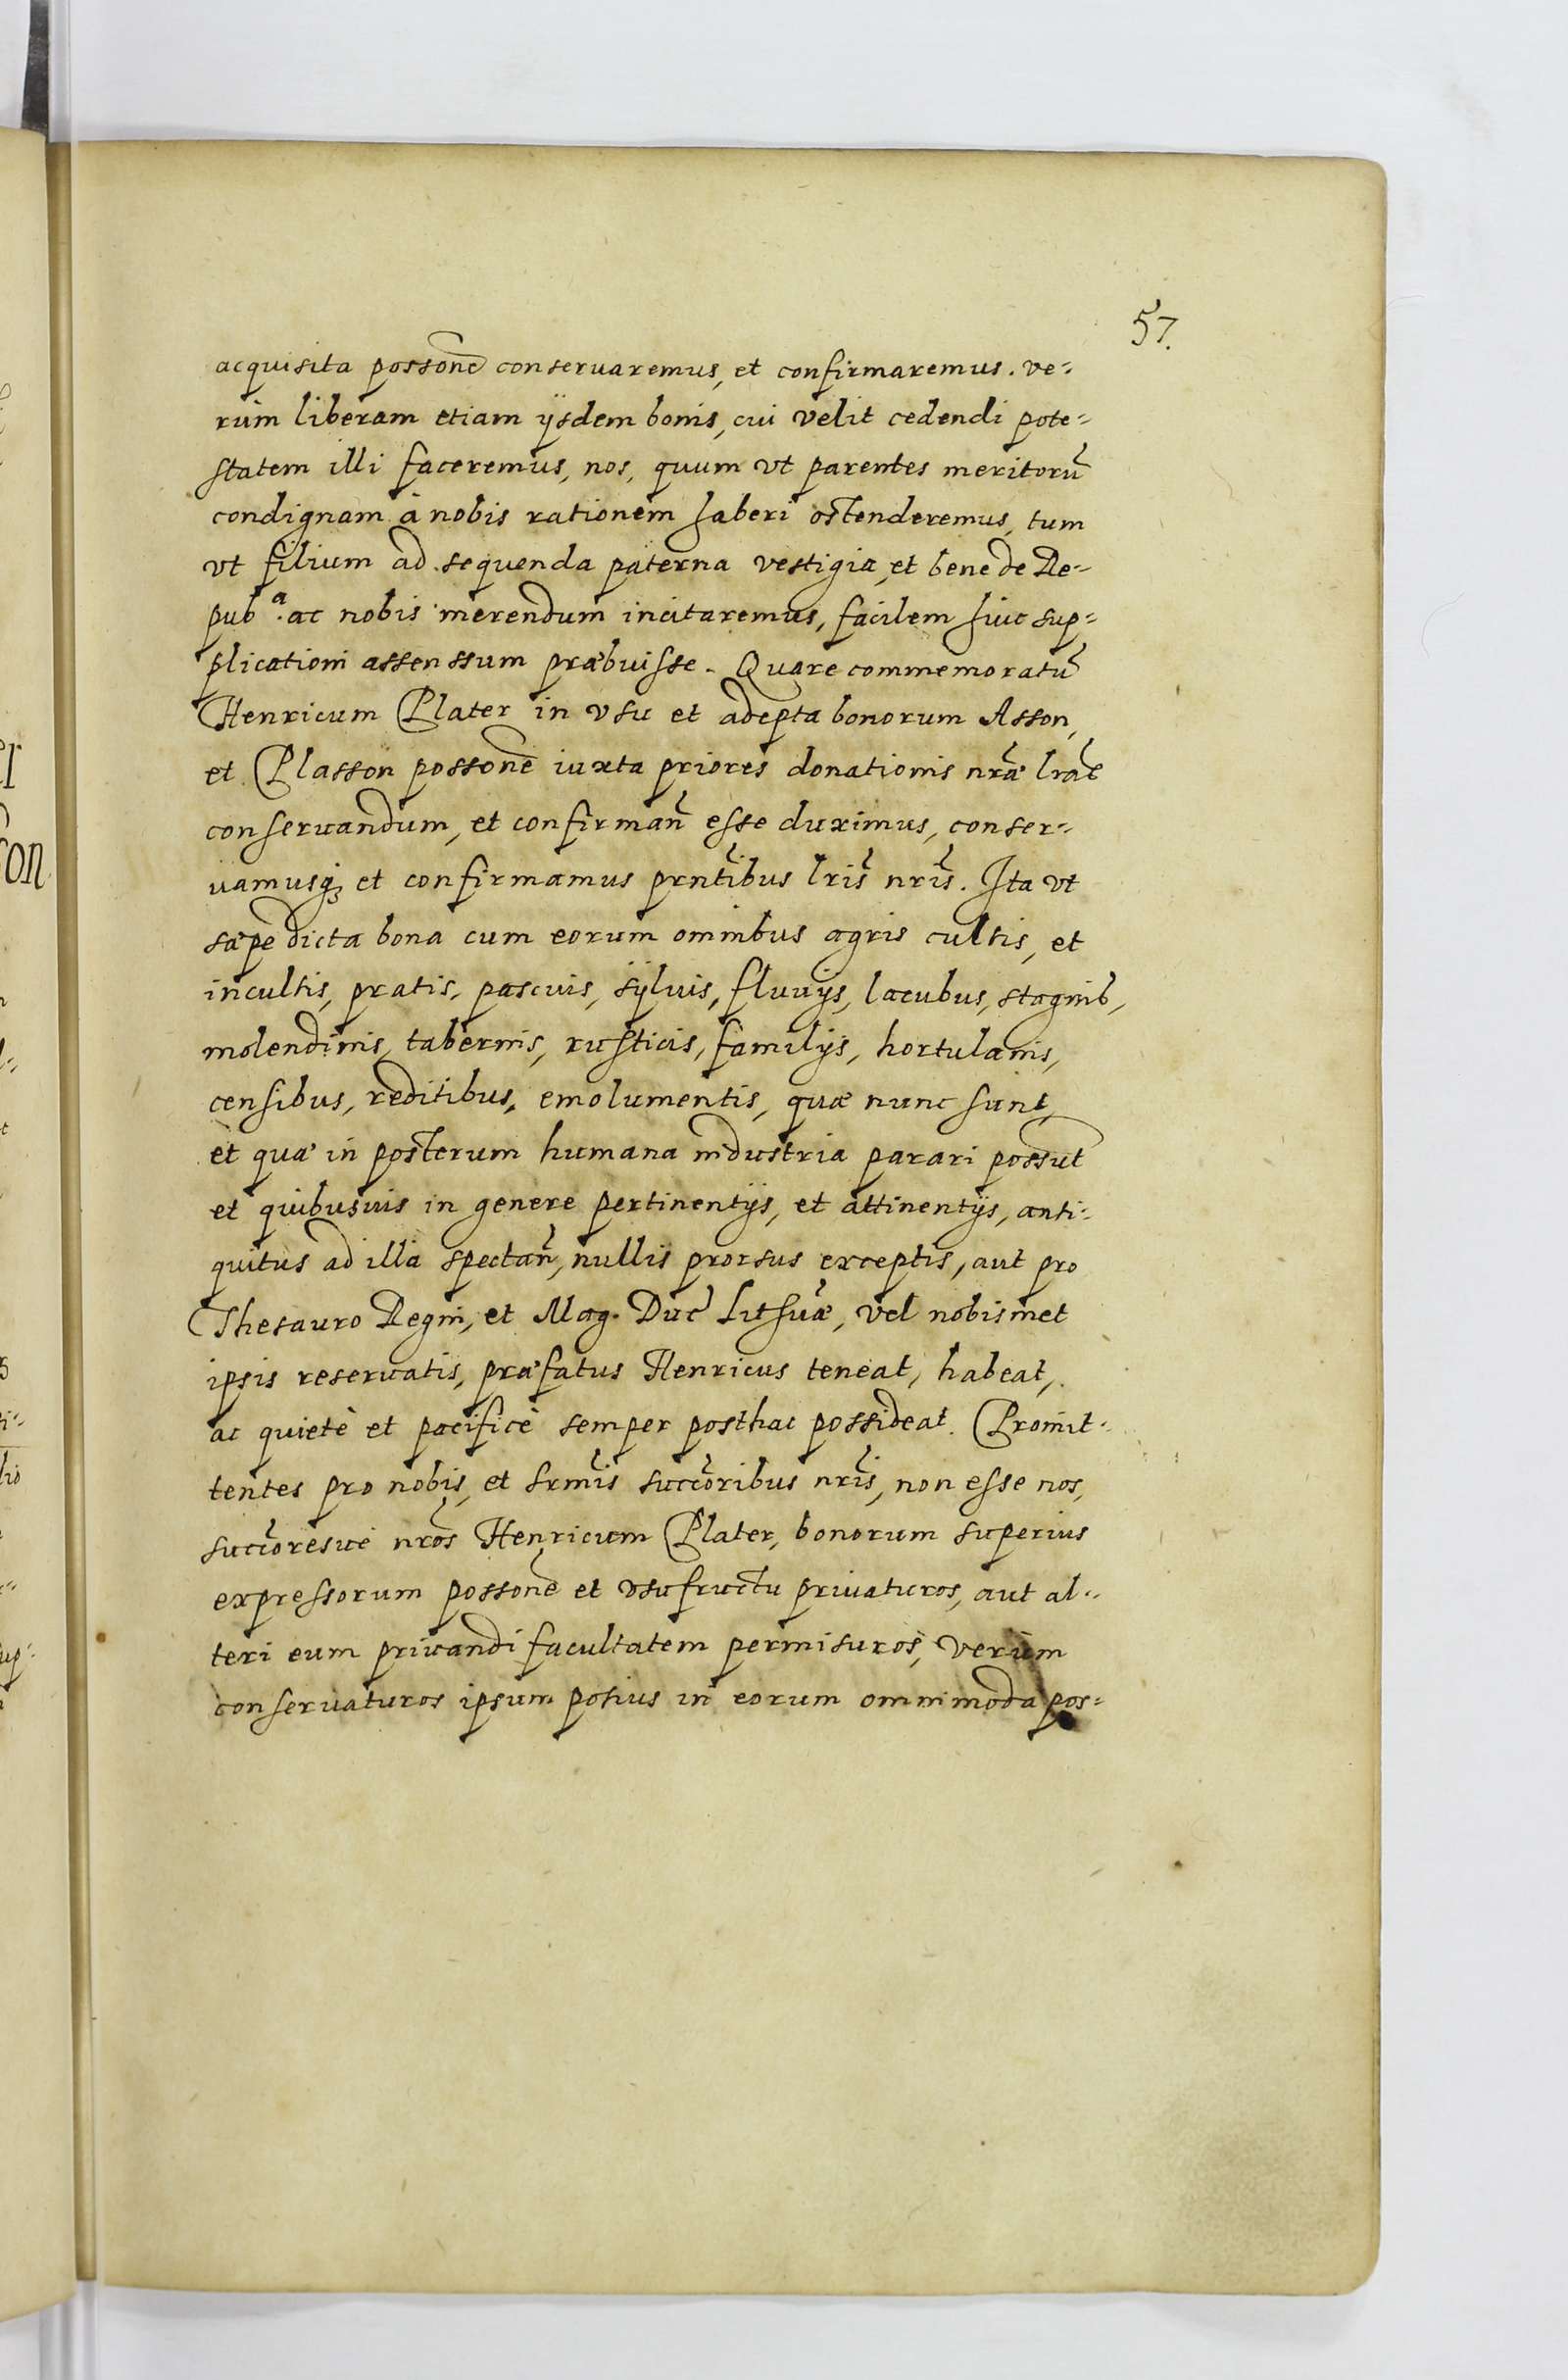 57.
acquisita possone conseruaremus, et confirmaremus. ve-
rùm liberam etiam ÿsdem bonis, cui velit cedendi pote-
statem illi faceremus, nos, quum vt parentes meritorũ
condignam à nobis rationem haberi ostenderemus, tum
vt filium ad sequenda paterna vestigia, et bene de Re-
pub.ª ac nobis merendum incitaremus, facilem huic sup-
plicationi assenssum præbuisse. Quare commemoratũ
Henricum Plater in vsu et adepta bonorum Asson,
et Plasson possone iuxta priores donationis nræ lrãs
conseruandum, et confirmañ esse duximus, conser-
uamusq; et confirmamus prñtibus lrĩs nrĩs. Ita vt
sæpe dicta bona cum eorum omnibus agris cultis, et
incultis, pratis, pascuis, sÿluis, fluuÿs, lacubus, stagnib,
molendinis, tabernis, rusticis, familÿs, hortulanis,
censibus, reditibus, emolumentis, quæ nunc sunt,
et quæ in posterum humana industria parari possũt
et quibusuis in genere pertinentÿs, et attinentÿs, anti-
quitus ad illa spectañ, nullis prorsus exceptis, aut pro
Thesauro Regni, et Mag. Duc Lithuæ, vel nobismet
ipsis reseruatis, præfatus Henricus teneat, habeat,
ac quietè et pacificè semper posthac possideat. Promit-
tentes pro nobis, et srmĩs succõribus nrĩs, non esse nos,
succõresue nrõs Henricum Plater, bonorum superius
expressorum possone et vsufructu priuaturos, aut al-
teri eum priuandi facultatem permisuros, verùm
conseruaturos ipsum potius in eorum omnimoda pos-